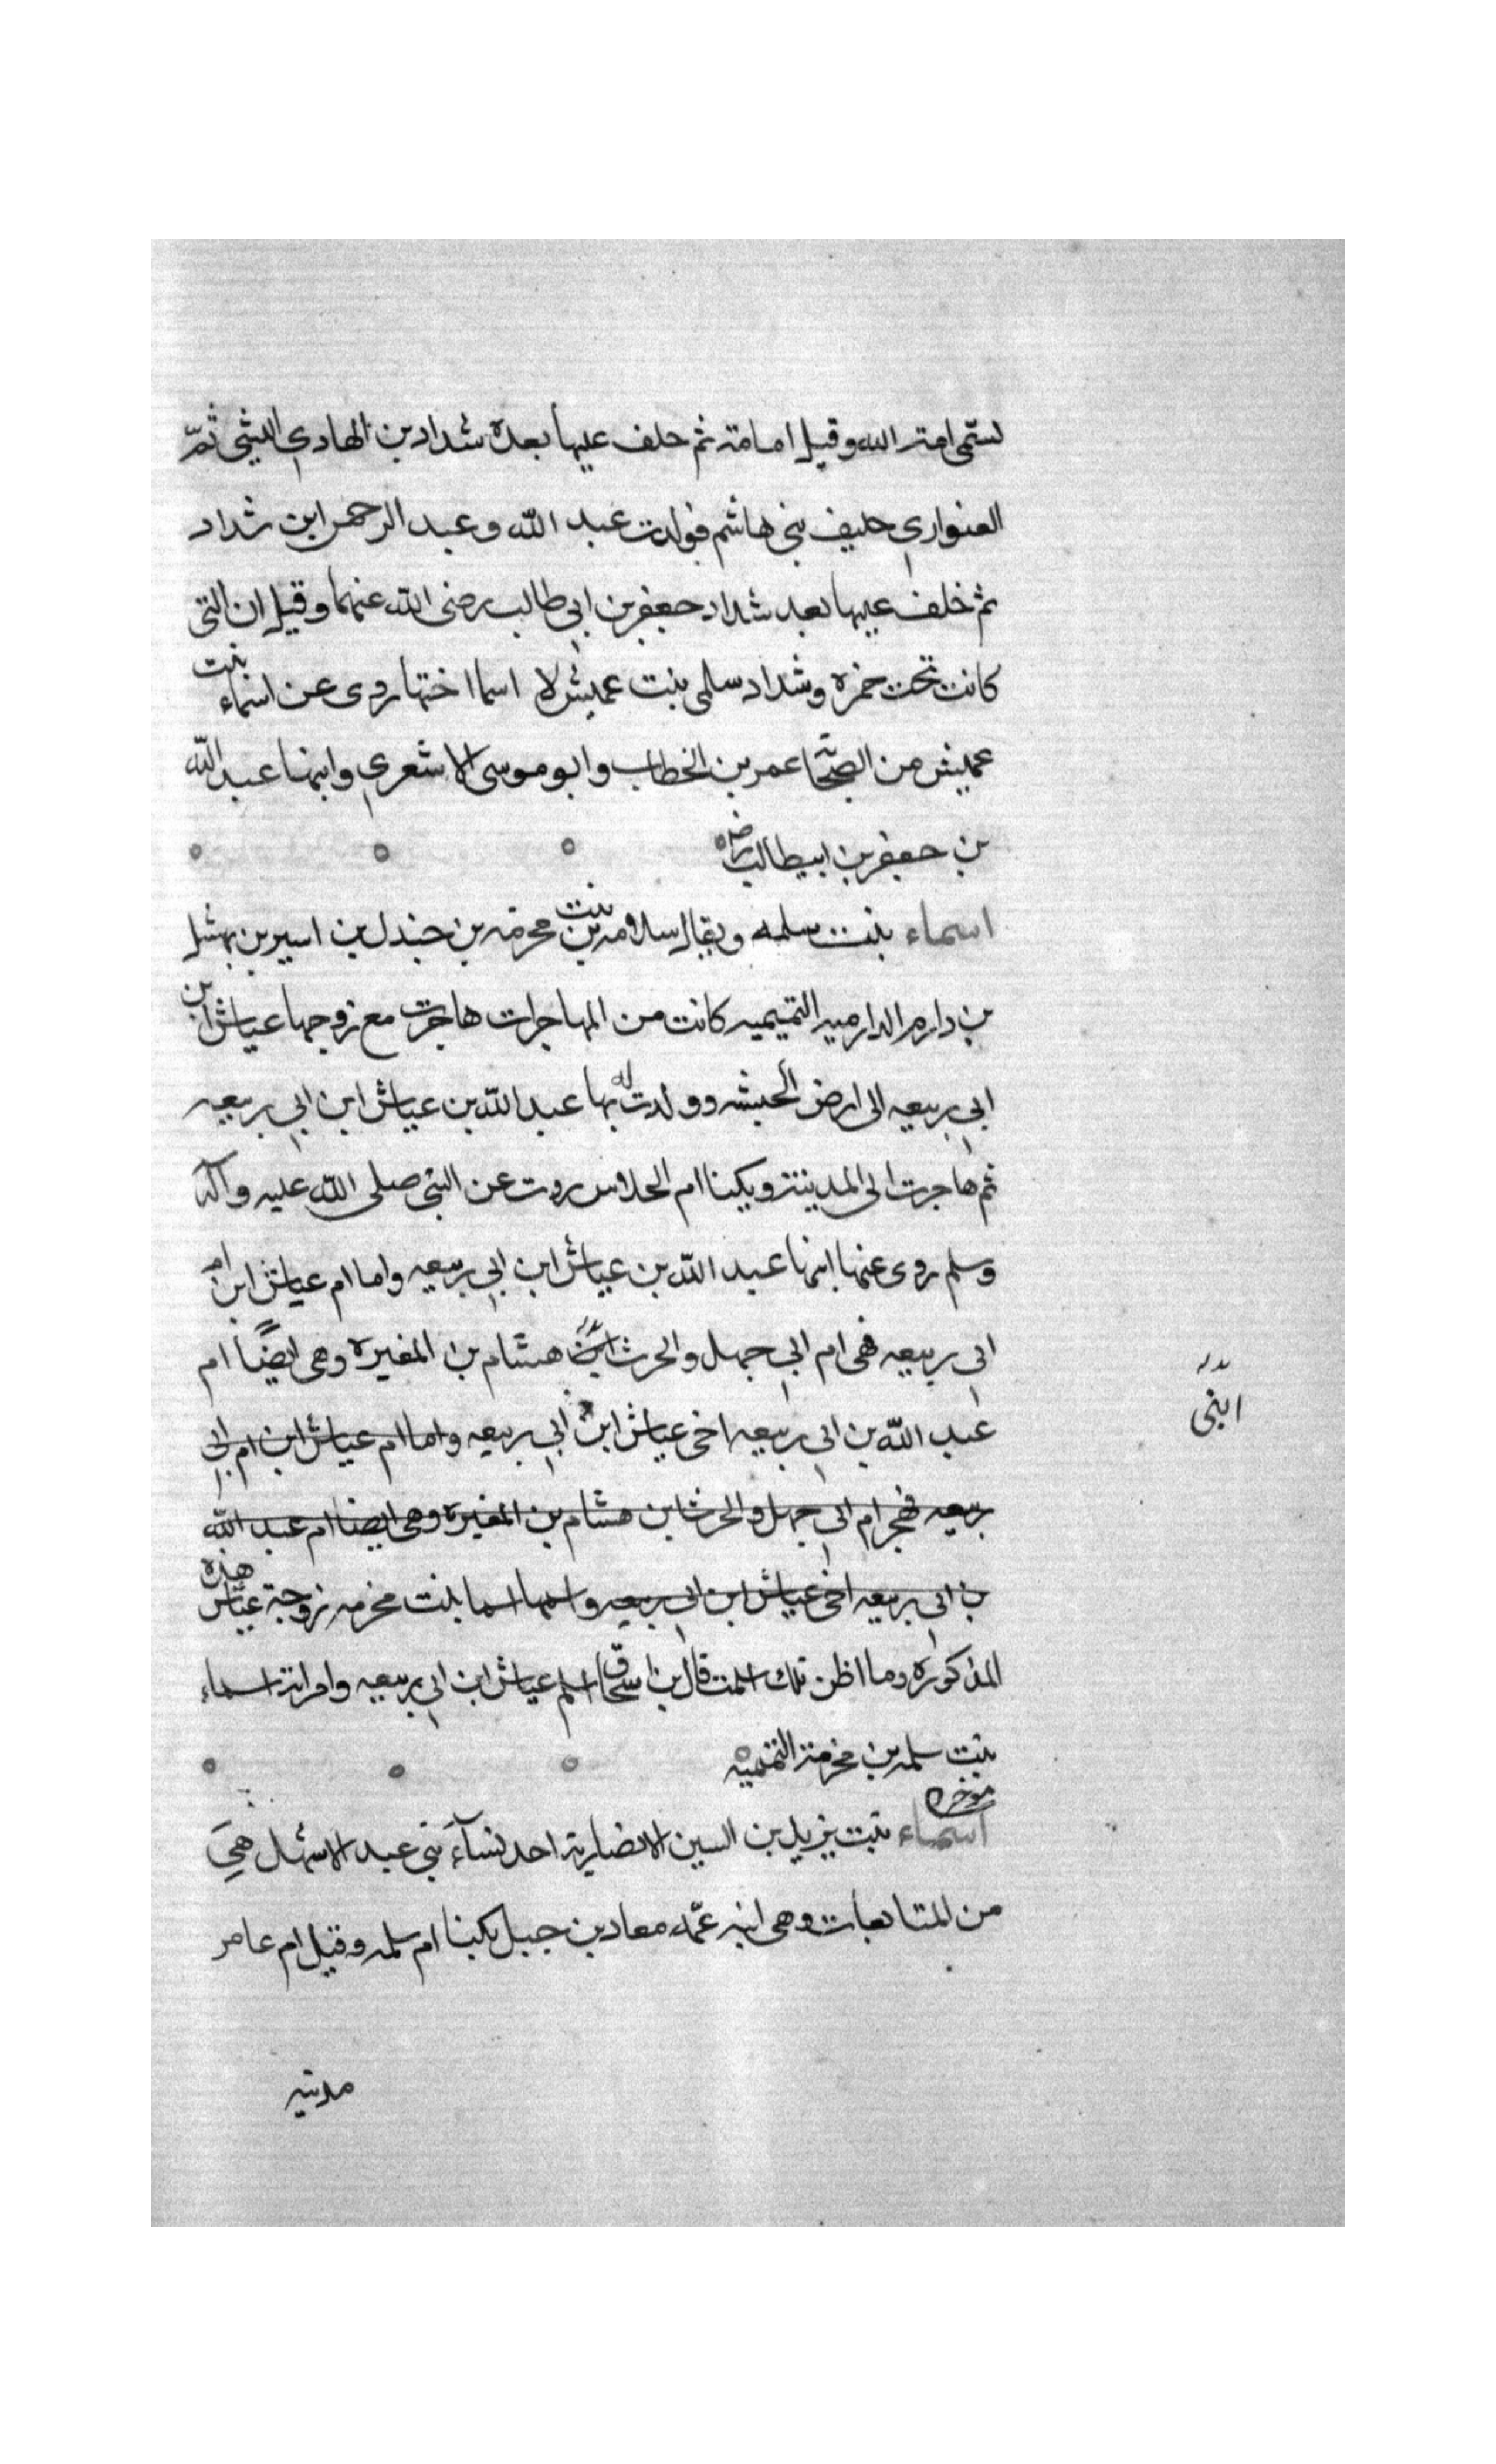 تسمى امة الله وقيل امامة ثم خلف عليها بعده شداد بن الهادي الليثي ثمّ
العتواري حليف بني هاشم فولدت عبد الله وعبد الرحمن ابن شداد
ثم خلف عليها بعد شداد جعفر بن ابي طالب رضى الله عنهما وقيل ان التى
كانت تحت حمزه وشداد سلمى بنت عميش لا اسما اختها روى عن اسماء بنت
عميش من الصحابة عمر بن الخطاب وابو موسى الاشعري وابنها عبد الله
بن جعفر بن ابيطالب رض
اسماء بنت سلمه ويقال سلامه بن بنت مخرمه بن جندل بن اسير بن نهشل
بن دارم الدارميه التميميه كانت من المهاجرات هاجرت مع زوجها عياش ابن
ابي ربيعه الى ارض الحبشه وولدت له بها عبد الله بن عياش ابن ابي ربيعه
ثم هاجرت الى المدينة ويكنا ام الجلاس روت عن النبي صلى الله عليه وآله
وسلم روى عنها ابنها عبد الله بن عياش ابن ابي ربيعه واما ام عياش ابن ام
ابي ربيعه فهى ام ابي جهل والحرث ابنى هشام بن المغيره وهى ايضًا ام
ابنى
عبد الله بن ابى ربيعه اخى عياش ابن ابي ربيعه واما ام عياش ابن ام ابي
ربيعه فهى ام ابي جهل والحرث ابن هشام بن المغيره وهى ايضا ام عبد الله
بن ابي ربيعه اخى عياش ابن ابي ربيعه واسمها اسما بنت مخرمه زوجة عيّاش هذه
المذكوره وما اظن تلك اسلمت قال بن اسحاق اسلم عياش ابن ابي ربيعه وامراته اسماء
بنت سلمه بن مخرمة التميميه
مؤخره
اسماء بنت يزيد بن السين الانصارية احد نسآء بني عبد الاشهل هي
من المتابعات وهى ابنه عمّه معاد بن جبل يكنا ام سلمه وقيل ام عامر
مدنيه